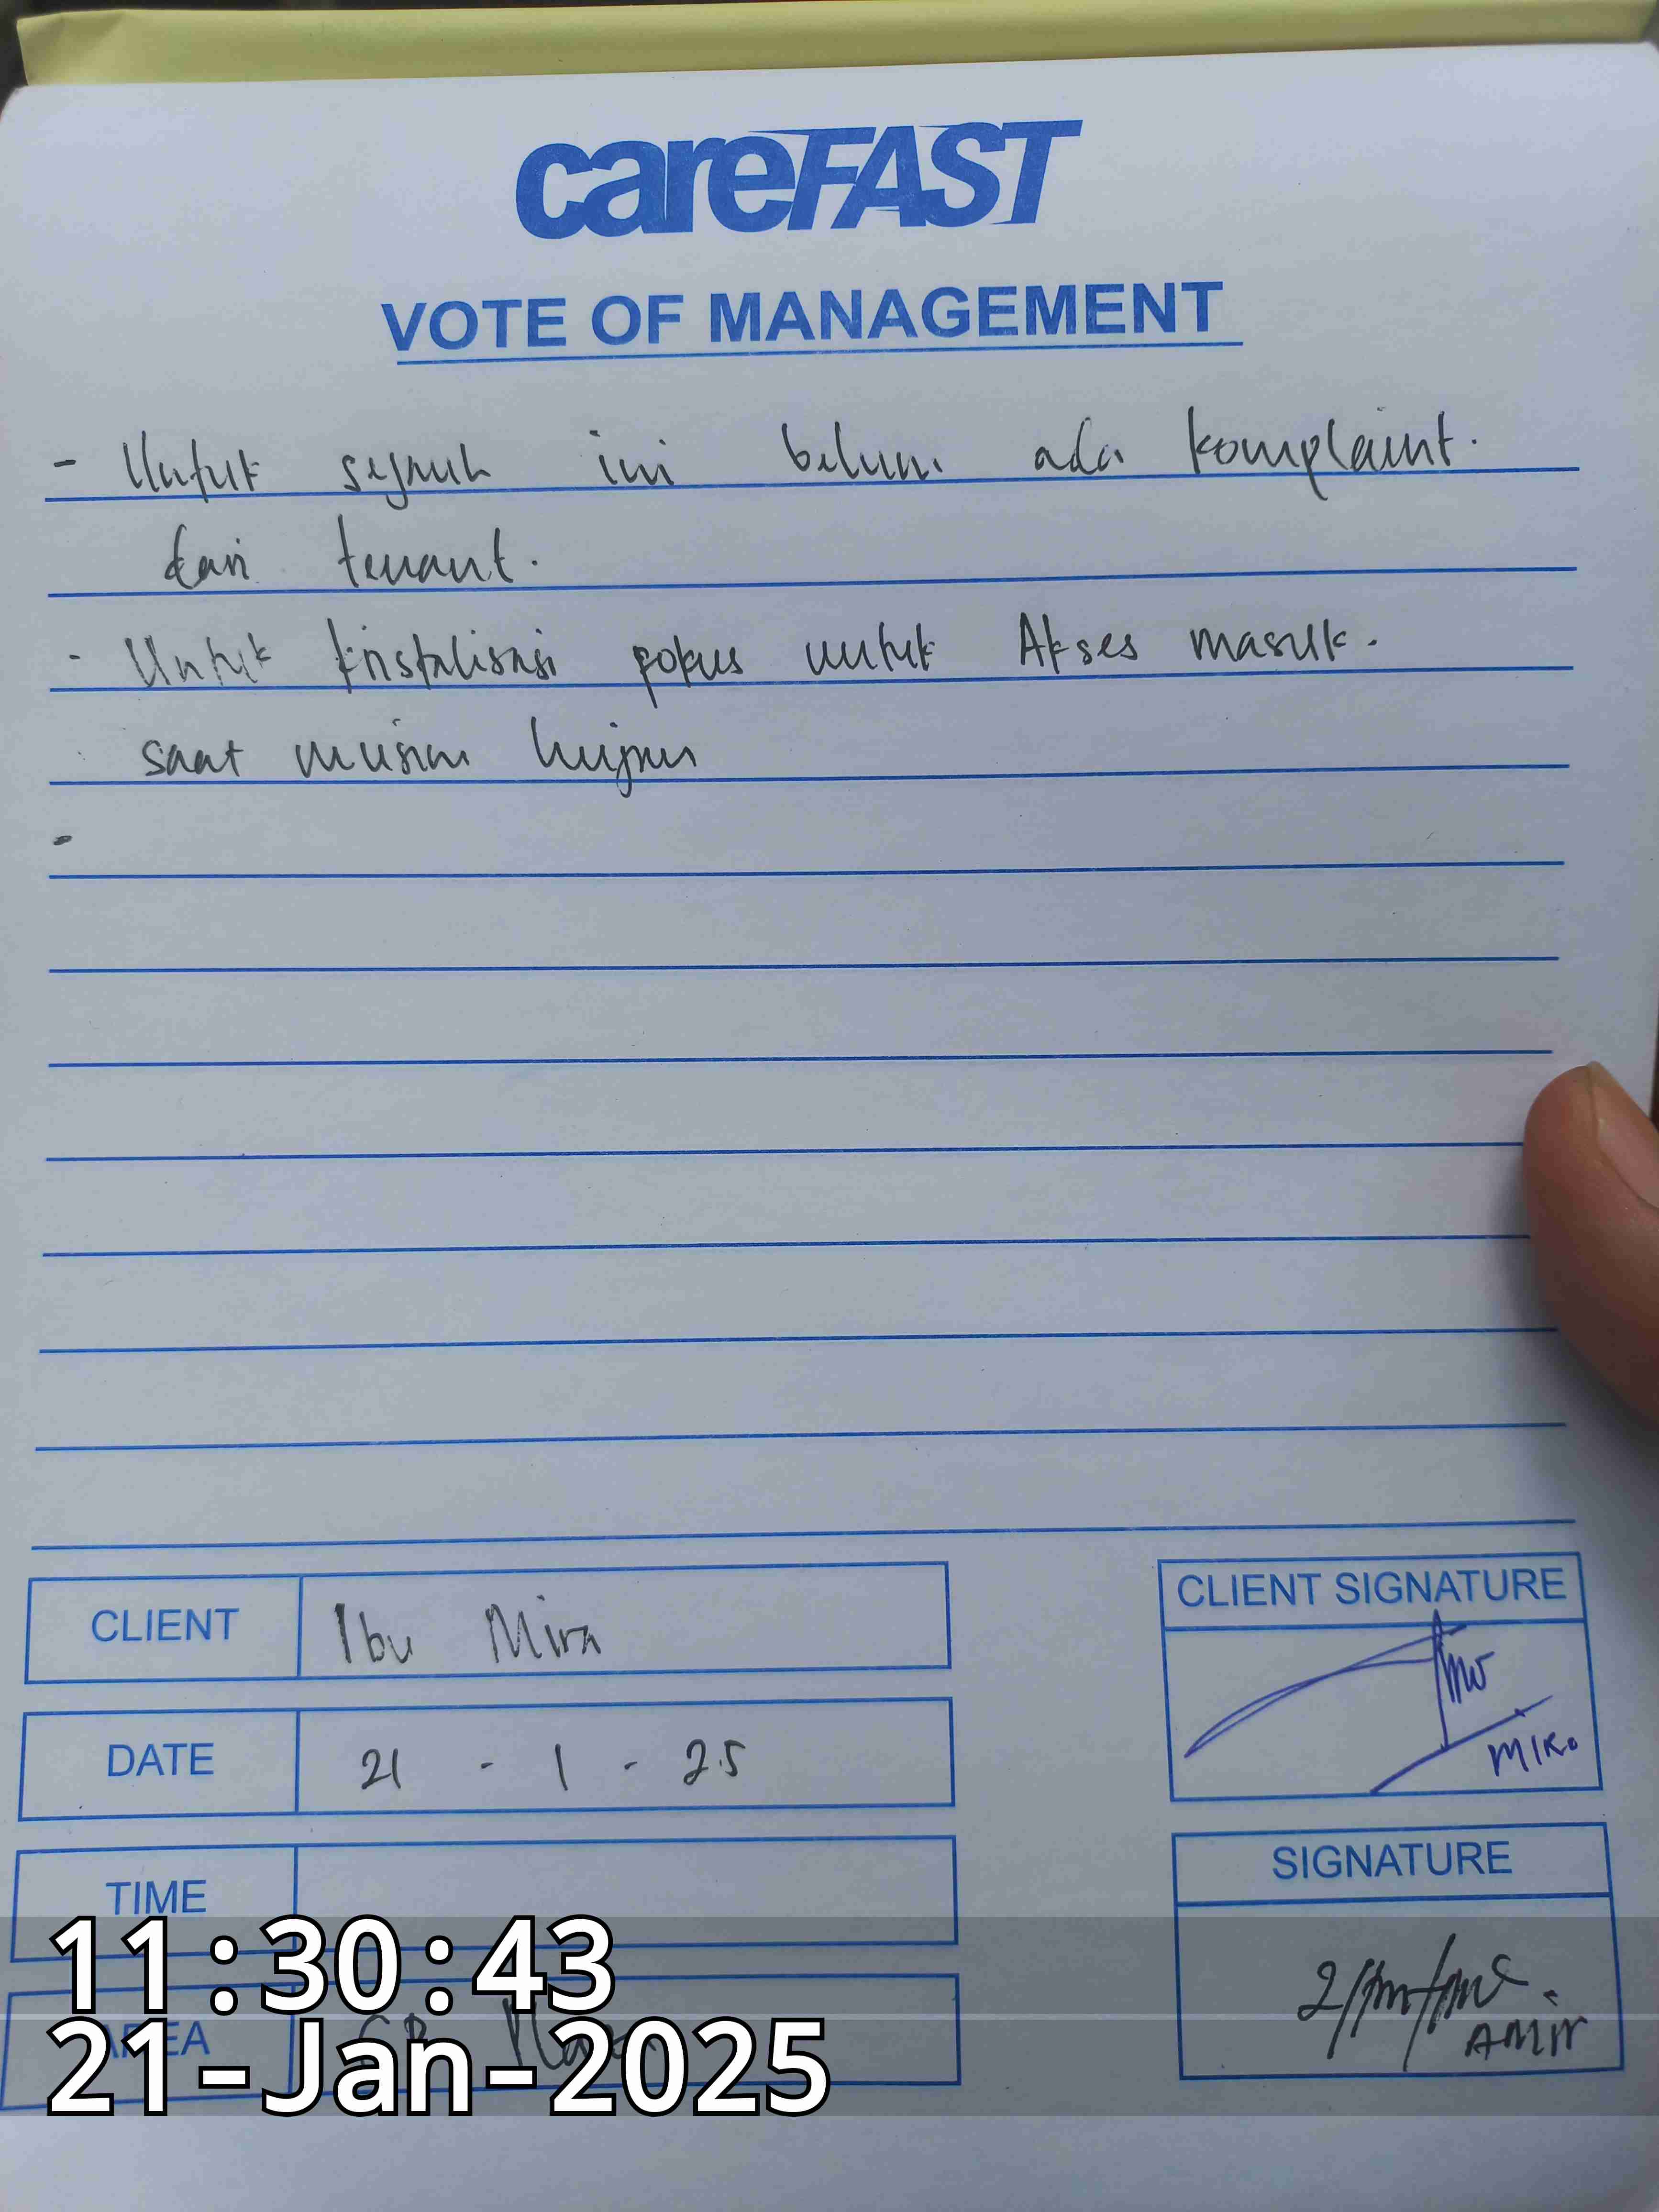 careFAST
VOTE OF MANAGEMENT
- Untuk sejauh ini belum ada komplaint.
dari tenant.
- Untuk kristalisasi pokus untuk Akses masuk.
saat musim hujan
-
CLIENT Ibu Mira
DATE 21 - 1 - 25
TIME
AREA
CLIENT SIGNATURE
MIKO
SIGNATURE
AMIR
11:30:43
21-Jan-2025